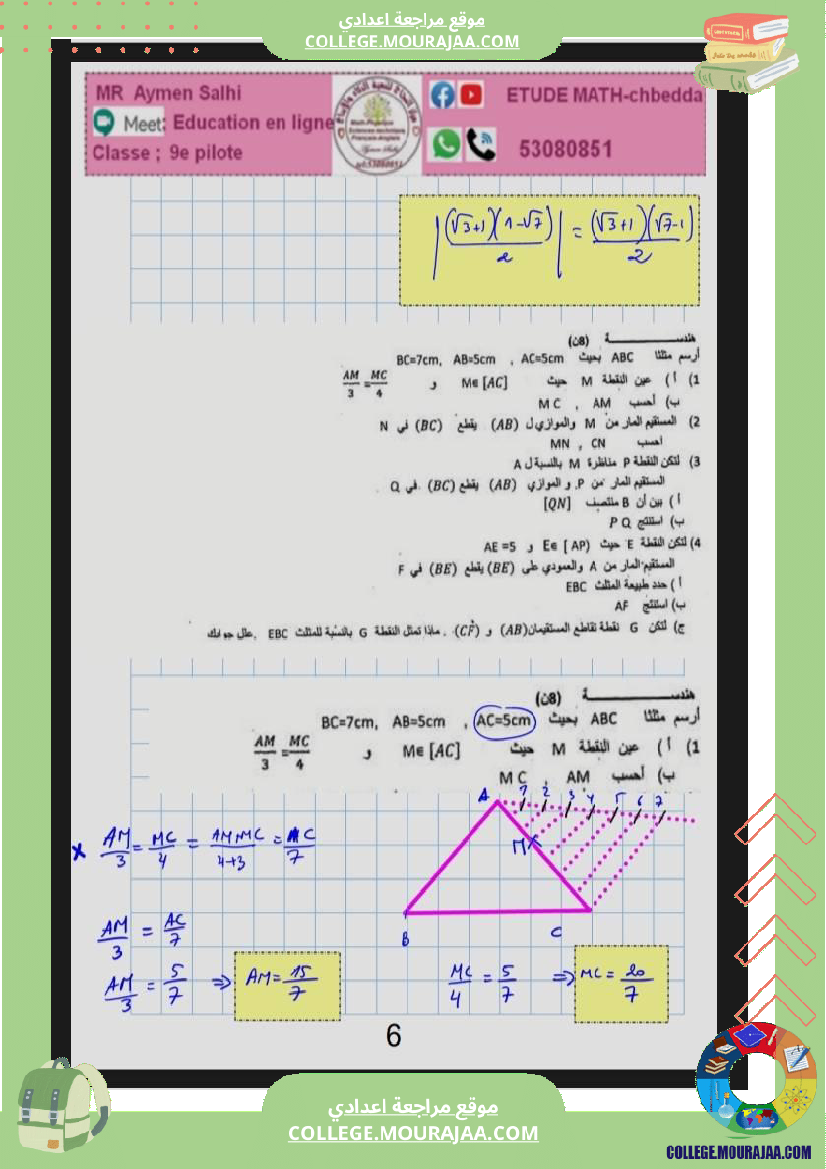 موقع مراجعة اعدادي
COLLEGE.MOURAJAA.COM
MR Aymen Salhi
Meet: Education en ligne
Classe ; 9e pilote
ETUDE MATH-chbedda
53080851
|(√3+1)(1-√7)/2| = (√3+1)(√7-1)/2
هندســــــة (8ن)
أرسم مثلثا ABC بحيث AC=5cm , AB=5cm ,BC=7cm
1) أ) عين النقطة M حيث M∈[AC] و AM/3=MC/4
ب) أحسب AM , MC
2) المستقيم المار من M والموازي ل (AB) يقطع (BC) في N
احسب MN , CN
3) لتكن النقطة P مناظرة M بالنسبة ل A
المستقيم المار من P. و الموازي (AB) يقطع (BC) في Q
أ) بين أن B منتصف [QN]
ب) استنتج PQ
4) لتكن النقطة E حيث E∈[AP) و AE=5
المستقيم المار من A والعمودي على (BE) يقطع (BE) في F
أ) حدد طبيعة المثلث EBC
ب) استنتج AF
ج) لتكن G نقطة تقاطع المستقيمان (AB) و (CF) . ماذا تمثل النقطة G بالنسبة للمثلث EBC .علل جوابك
هندســــــة (8ن)
أرسم مثلثا ABC بحيث AC=5cm , AB=5cm ,BC=7cm
1) أ) عين النقطة M حيث M∈[AC] و AM/3=MC/4
ب) أحسب AM , MC
A 1 2 3 4 5 6 7
M
B C
x AM/3 = MC/4 = AM MC/4+3 = AC/7
AM/3 = AC/7
AM/3 = 5/7 ⇒ AM = 15/7
MC/4 = 5/7 ⇒ MC = 20/7
6
موقع مراجعة اعدادي
COLLEGE.MOURAJAA.COM
COLLEGE.MOURAJAA.COM